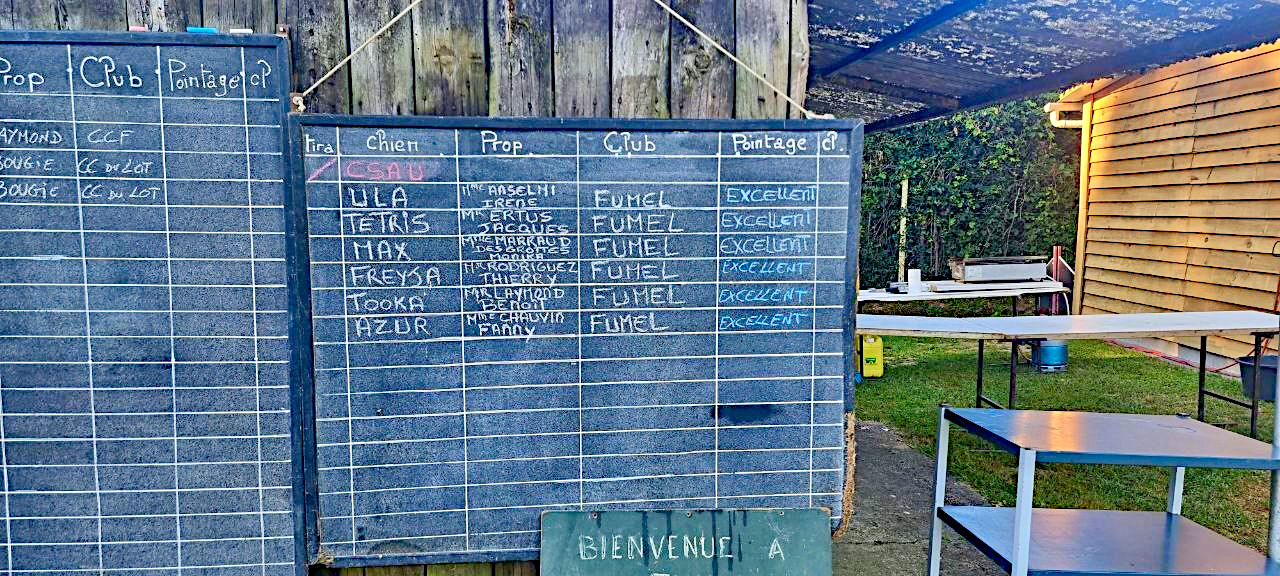 Prop Club Pointage cl
AYMOND CCF
BOUGIE CC DU LOT
BOUGIE CC DU LOT
Tira Chien Prop. Club Pointage cl.
CSAU
ULA Mme ANSELMI IRENE FUMEL EXCELLENT
TETRIS Mr ERTUS JACQUES FUMEL EXCELLENT
MAX Mme MARRAUD MONIKA FUMEL EXCELLENT
FREYSA Mr RODRIGUEZ THIERRY FUMEL EXCELLENT
TOOKA Mr BENOIT FUMEL EXCELLENT
AZUR Mme CHAUVIN FANNY FUMEL EXCELLENT
BIENVENUE A